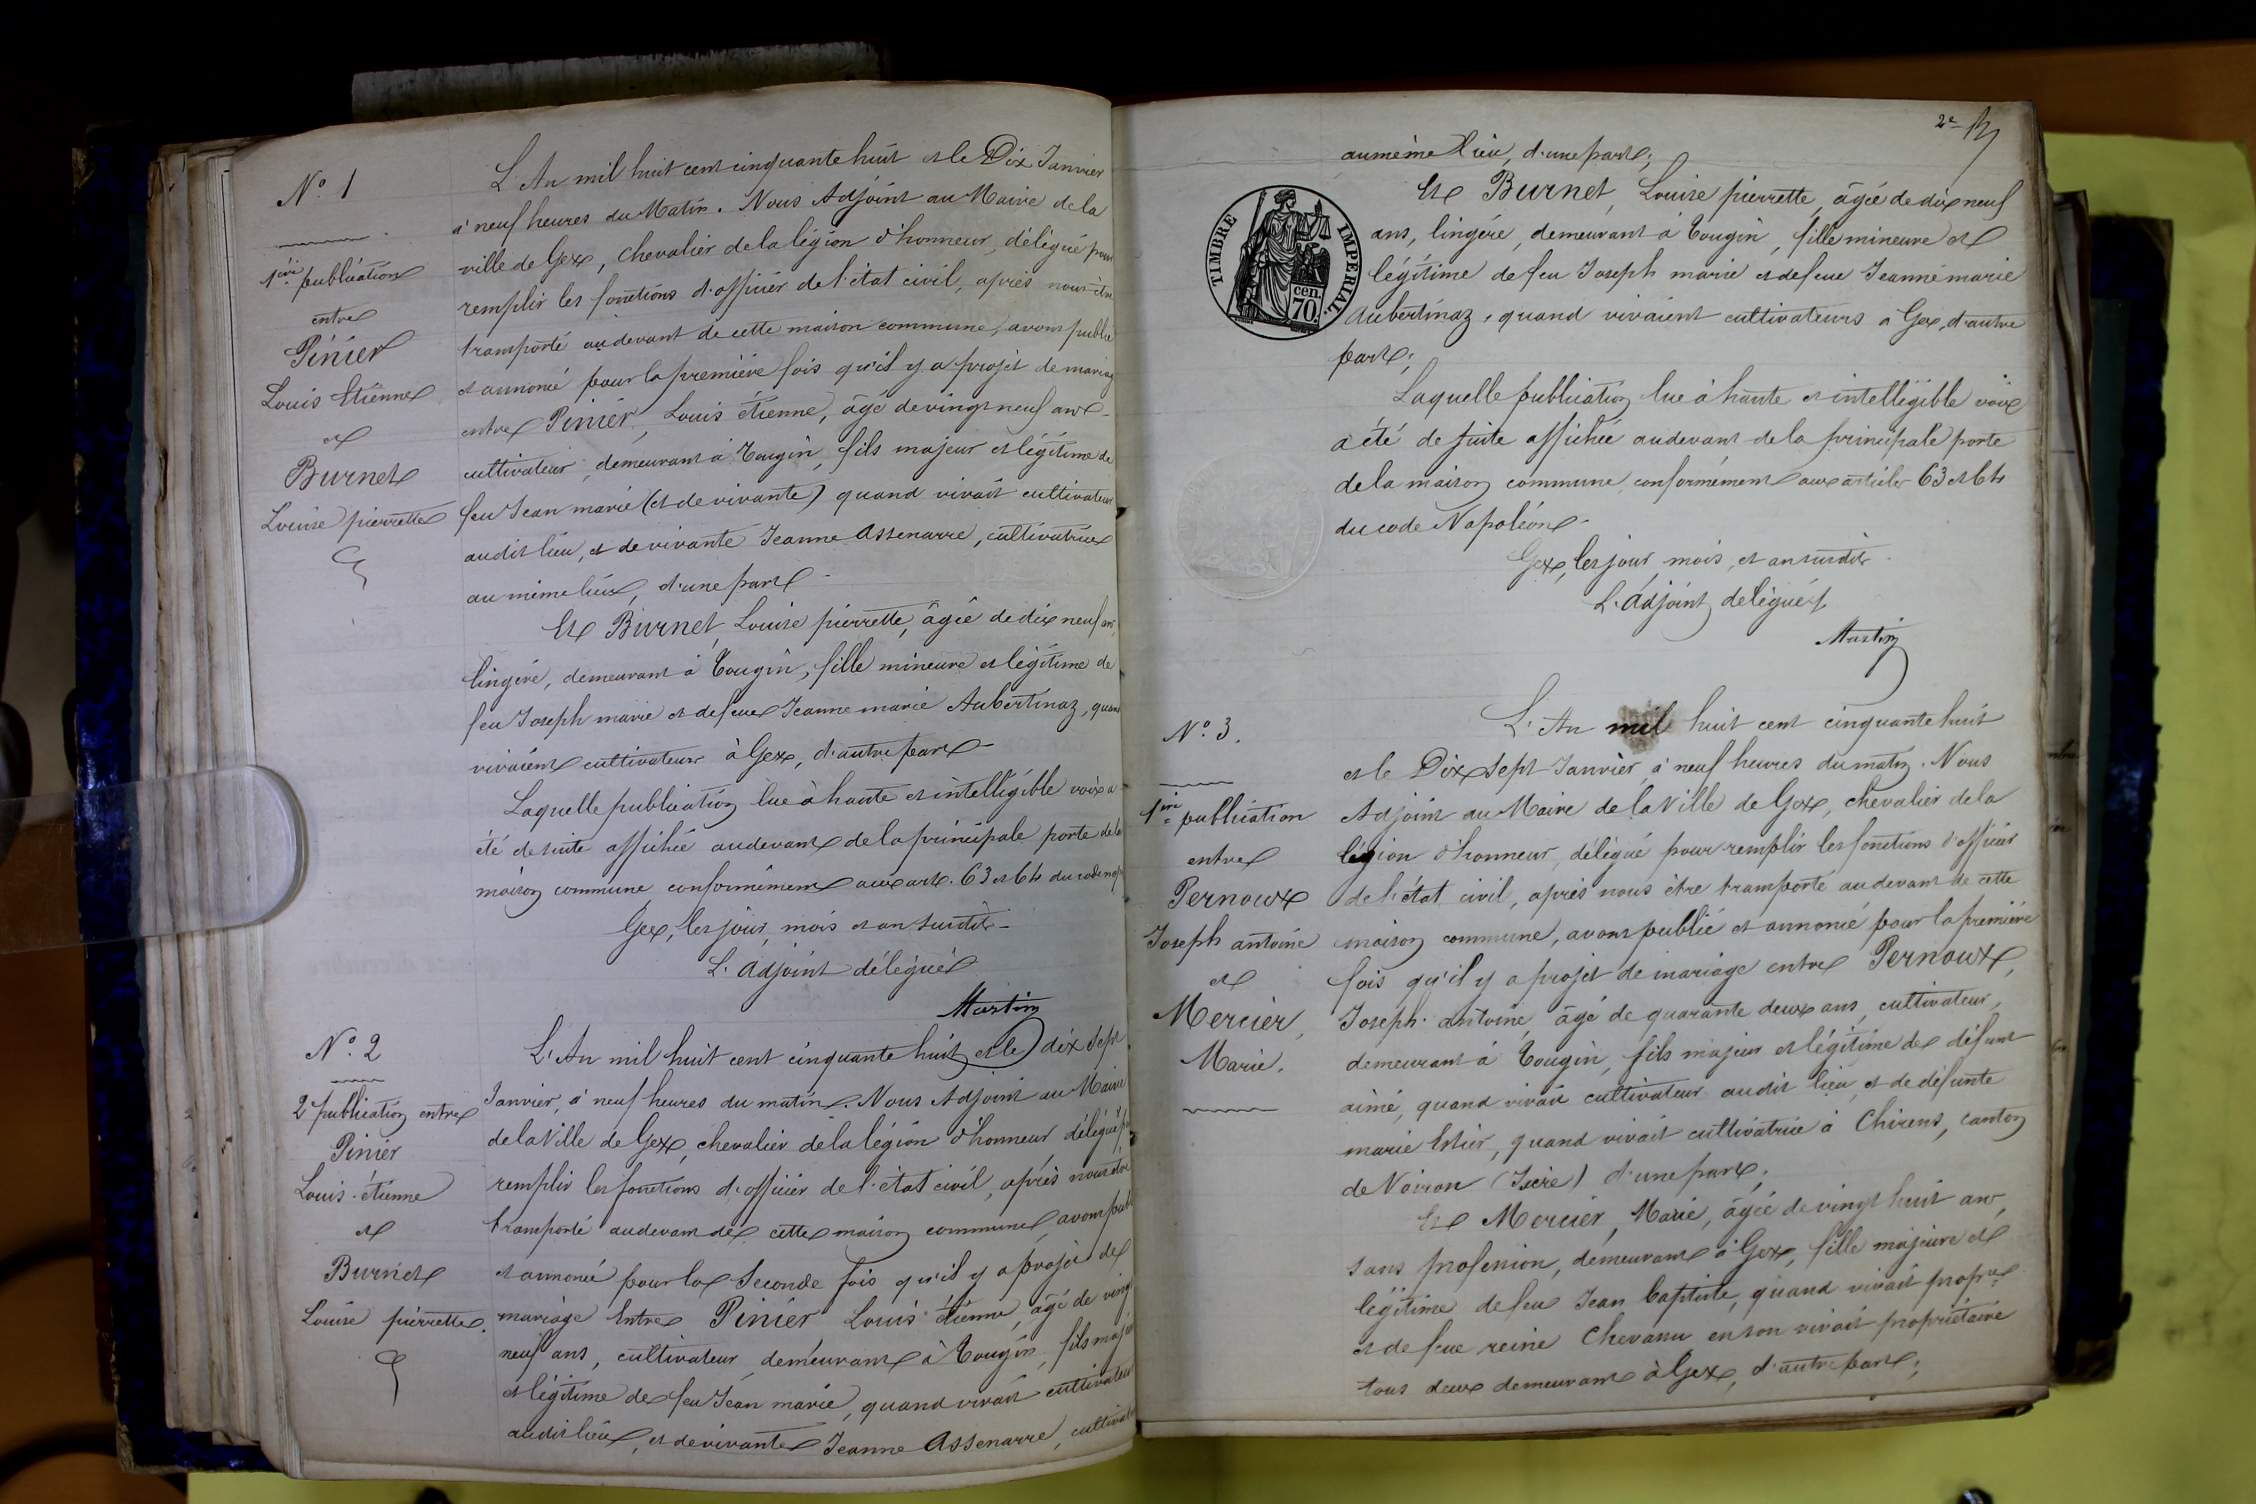 N.º 1
1ère publication
entre
Pinier
Louis Etienne
et
Burnet
Louise pierrette
L'An mil huit cent cinquante huit et le Dix Janvier
à neuf heures du Matin. Nous Adjoint au Maire de la
ville de Gex, chevalier de la légion d'honneur, délégué pour
remplir les fonctions d'officier de l'état civil, après nous être
transporté au devant de cette maison commune, avons publié
et annoncé pour la première fois qu'il y a projet de mariage
entre Pinier, Louis étienne, âgé de vingt neuf ans
cultivateur, demeurant à Tougin, fils majeur et légitime de
feu Jean marie (et de vivante) quand vivait cultivateur
audit lieu, et de vivante Jeanne Assenarre, cultivatrice
au même lieu, d'une part
Et Burnet, Louise pierrette, âgée de dix neuf ans,
lingère, demeurant à Tougin, fille mineure et légitime de
feu Joseph marie et de feue Jeanne marie Aubertinaz, quand
vivaient cultivateurs à Gex, d'autre part
Laquelle publication lue à haute et intelligible voix a
été de suite affichée au devant de la principale porte de la
maison commune conformément aux art. 63 et 64 du code nap
Gex, les jour, mois et an susdits
L'adjoint délégué
Martin
N.º 2
2e publication entre
Pinier
Louis étienne
et
Burnet
Louise pierrette.
L'An mil huit cent cinquante huit et le dix Sept
Janvier, à neuf heures du matin. Nous Adjoint au Maire
de la Ville de Gex, chevalier de la légion d'honneur, délégué
remplir les fonctions d'officier de l'état civil, après nous être
transporté au devant de cette maison commune, avons publ
et annoncé pour la Seconde fois qu'il y a projet de
mariage Entre Pinier Louis étienne, âgé de vingt
neuf ans, cultivateur, demeurant à Tougin, fils maj
et légitime de feu Jean marie, quand vivait cultivateur
audit lieu, et de vivante Jeanne Assenarre, cultivat
2e
au même lieu, d'une part;
TIMBRE IMPERIAL.
cen.
70.
Et Burnet, Louise pierrette, âgée de dix neuf
ans, lingère, demeurant à Tougin, fille mineure et
légitime de feu Joseph marie et de feue Jeanne marie
Aubertinaz, quand vivaient cultivateurs à Gex, d'autre
part;
Laquelle publication lue à haute et intelligible voix
a été de suite affichée au devant de la principale porte
de la maison commune, conformément aux articles 63 et 64
du code Napoléon
Gex, les jour, mois, et an susdits
L'Adjoint délégué
Martin
N.º 3.
1ère publication
entre
Pernoux
Joseph antoine
et
Mercier,
Marie.
L'An mil huit cent cinquante huit
et le Dix sept Janvier, à neuf heures du matin. Nous
Adjoint au Maire de la Ville de Gex, chevalier de la
légion d'honneur, délégué pour remplir les fonctions d'officier
de l'état civil, après nous être transporté au devant de cette
maison commune, avons publié et annoncé pour la première
fois qu'il y a projet de mariage entre Pernoux,
Joseph antoine, âgé de quarante deux ans, cultivateur,
demeurant à Tougin, fils majeur et légitime de défunt
aimé, quand vivait cultivateur audit lieu, et de défunte
marie Estier, quand vivait cultivatrice à Chirens, canton
de Voiron (Isère) d'une part,
Et Mercier, Marie, âgée de vingt huit ans,
sans profession, demeurant à Gex, fille majeure et
légitime de feu Jean Baptiste, quand vivait propre
et de feue reine Chevassu en son vivait propriétaire
tous deux demeurant à Gex, d'autre part;